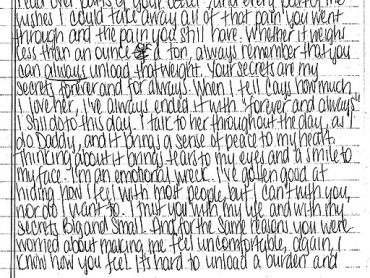 read over parts of your letter and every part of me
wishes I could take away all of that pain you went
through and the pain you still have. Whether it weighs
less than an ounce or a ton, always remember that you
can always unload that weight. Your secrets are my
secrets forever and for always. When I tell Lays how much
I love her, I've always ended it with "forever and always"
I still do to this day. I talk to her throughout the day, as I
do Daddy, and it brings a sense of peace to my heart.
Thinking about it brings tears to my eyes and a smile to
my face. I'm an emotional wreck. I've gotten good at
hiding how I feel with most people, but I can't with you,
nor do I want to. I trust you with my life and with my
secrets Big and Small. And for the same reasons you were
worried about making me feel uncomfortable, again, I
know how you feel. It's hard to unload a burden and